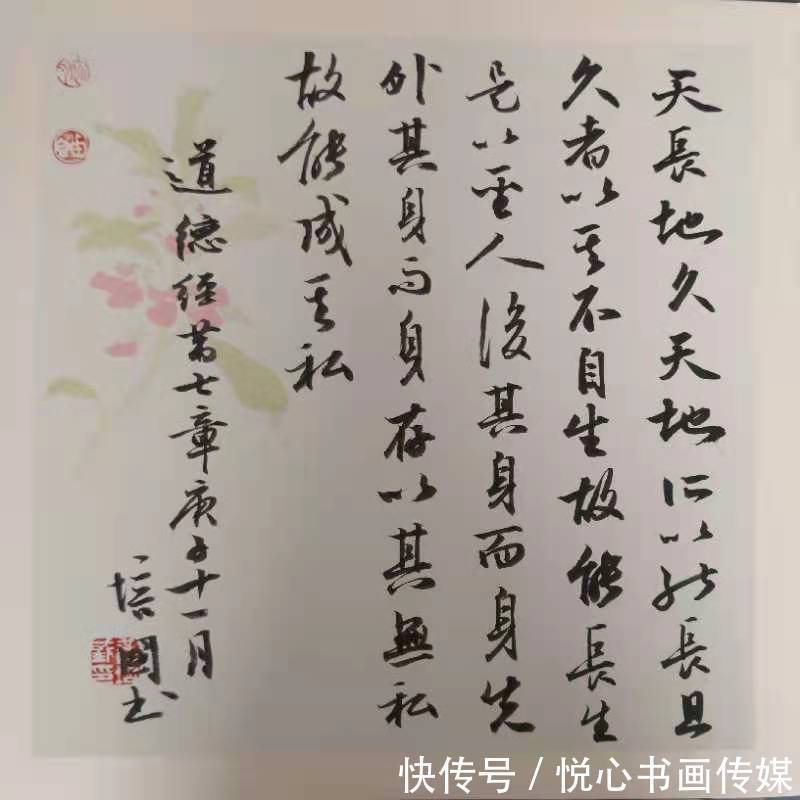 天長地久天地所以能長且
久者以其不自生故能長生
是以聖人後其身而身先
外其身而身存以其無私
故能成其私
道德經第七章庚子十一月
培國书
快传号 / 悦心书画传媒